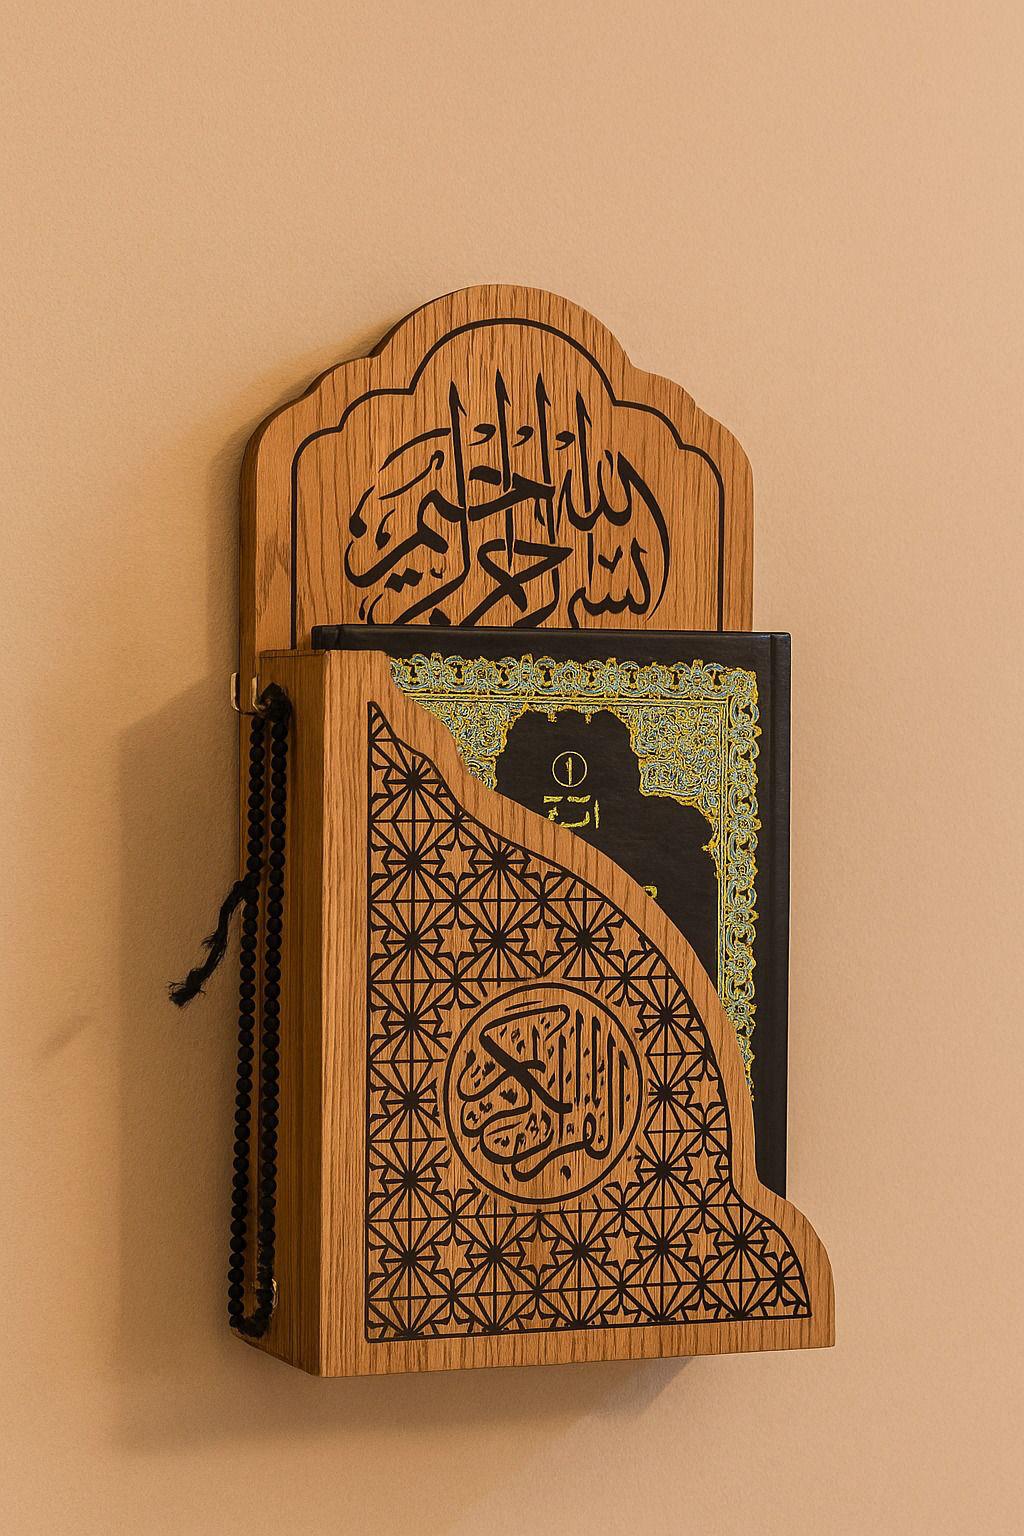 بسم الله الرحمن الرحيم
١
القرآن الكريم